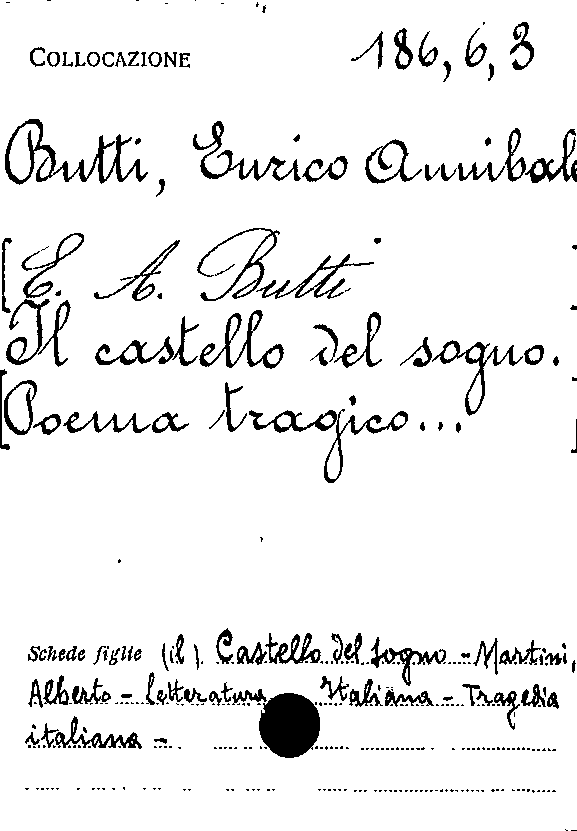 COLLOCAZIONE 186, 6, 3
Butti, Enrico Annibale
[E. A. Butti]
Il castello del sogno.
[Poema tragico...]
Schede figlie (il) Castello del sogno - Martini,
Alberto - Letteratura Italiana - Tragedia
italiana -